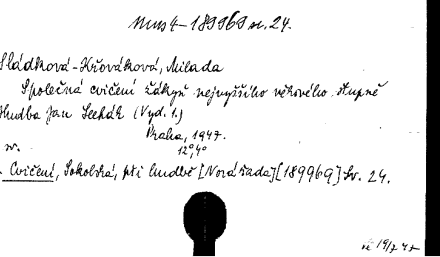 Mus 4 - 189969 sv. 24.
Sládková-Křováková, Milada
Společná cvičení žákyň nejvyššího věkového stupně
Hudba Jan Seehák (Vyd. 1.)
Praha, 1947.
12°, 4°
Cvičení, Sokolská, při hudbě [Nová řada] [189969] Sv. 24.
19/7 47